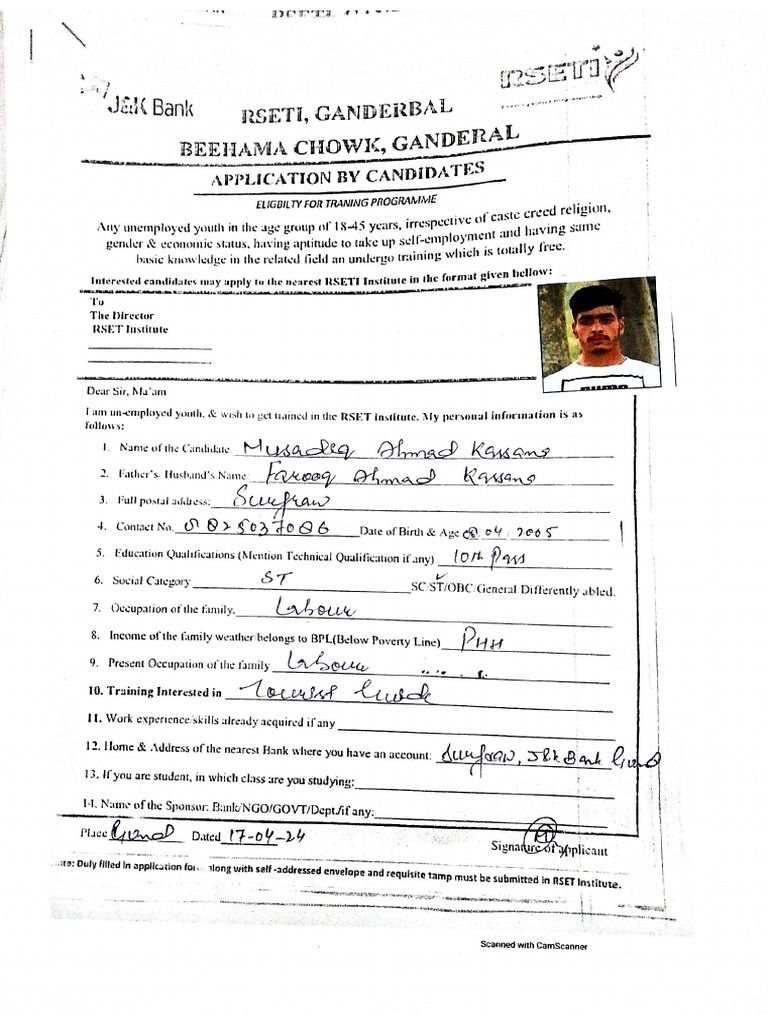 J&K Bank
RSETI
RSETI, GANDERBAL
BEEHAMA CHOWK, GANDERAL
APPLICATION BY CANDIDATES
ELIGBILTY FOR TRANING PROGRAMME
Any unemployed youth in the age group of 18-45 years, irrespective of caste creed religion,
gender & economic status, having aptitude to take up self-employment and having same
basic knowledge in the related field an undergo training which is totally free.
Interested candidates may apply to the nearest RSETI Institute in the format given bellow:
To
The Director
RSET Institute
Dear Sir, Ma'am
I am un-employed youth, & wish to get trained in the RSET institute. My personal information is as
follows:
1. Name of the Candidate Musadiq Ahmad Kassana
2. Father's. Husband's Name: Farooq Ahmad Kassana
3. Full postal address: Surfraw
4. Contact No. Date of Birth & Age 04 2005
5. Education Qualifications (Mention Technical Qualification if any) 10th Pass
6. Social Category ST SC/ST/OBC/General Differently abled.
7. Occupation of the family. Labour
8. Income of the family weather belongs to BPL(Below Poverty Line) PHH
9. Present Occupation of the family Labour
10. Training Interested in Tourist Guide
11. Work experience/skills already acquired if any
12. Home & Address of the nearest Bank where you have an account: Surfraw, J&K Bank Gund
13. If you are student, in which class are you studying:
14. Name of the Sponsor: Bank/NGO/GOVT/Dept./if any:
Place Gund Dated 17-04-24
Signature of applicant
Duly filled in application along with self-addressed envelope and requisite tamp must be submitted in RSET Institute.
Scanned with CamScanner